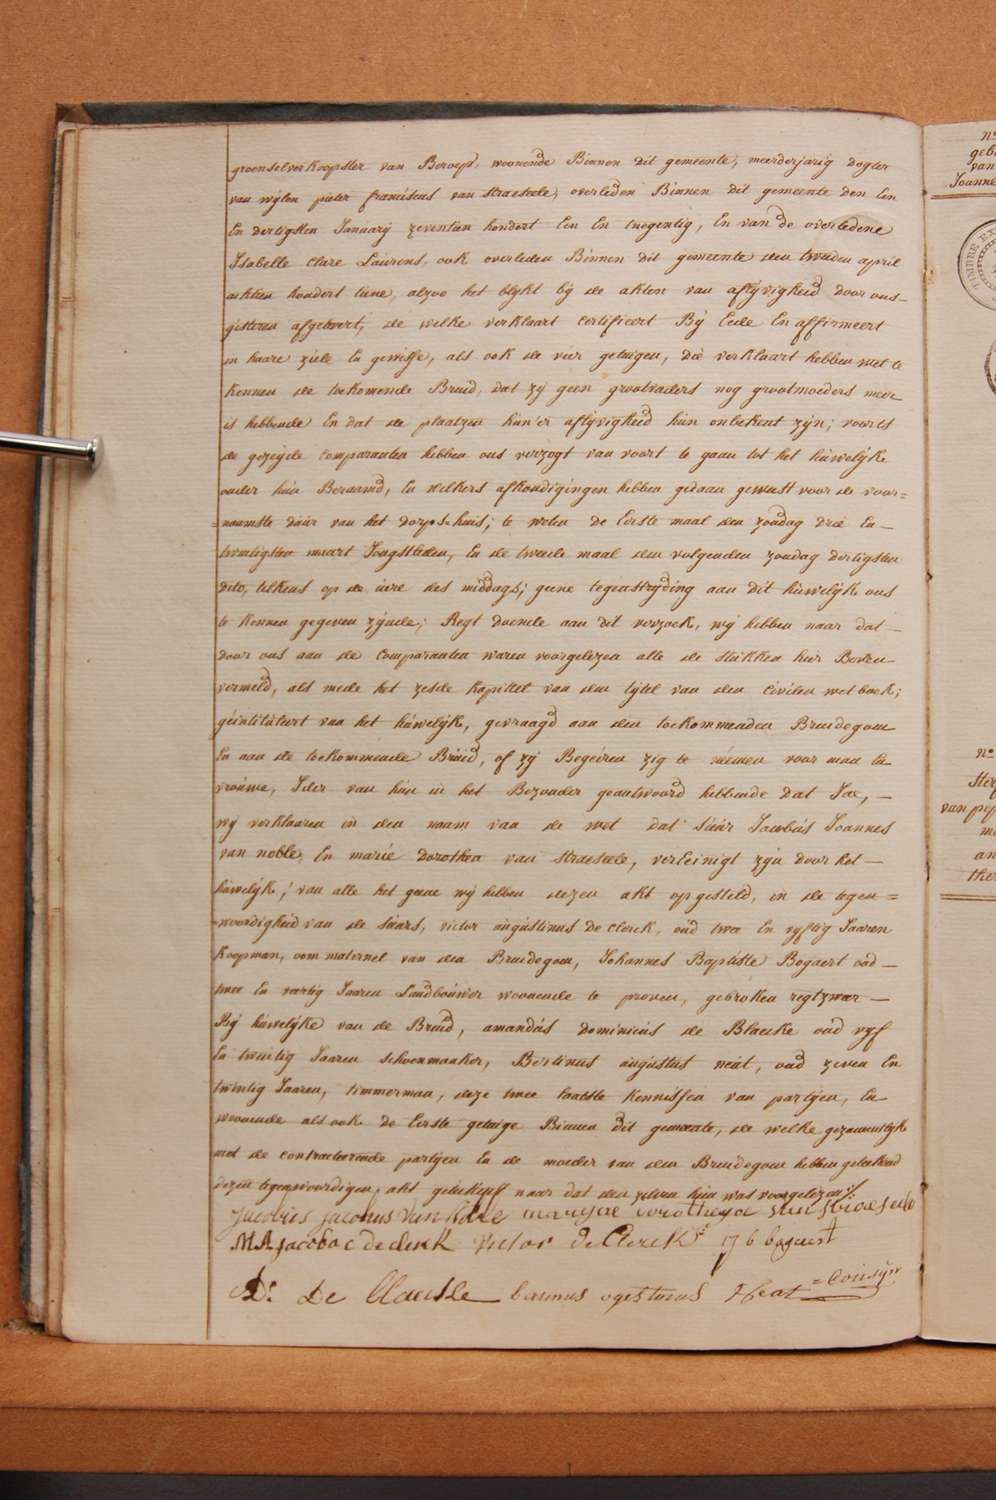 groenselverkoopster van Beroep, woonende Binnen dit gemeente, meerderjarig dogter
van wijlen pieter franciscus van straeseele, overleden Binnen dit gemeente den Een
En dertigsten Januarij zeventien hondert Een En tnegentig, En van de overledene
Isabelle Clare Laurens, ook overleden Binnen dit gemeente den tweeden april
achtien hondert tiene, alzoo het blykt bij de akten van aflijvigheid door ons
gisteren afgelevert, de welke verklaart certificeert Bij Eede En affirmeert
in haare ziele En gewisse, als ook de vier getuigen, die verklaart hebben wel te
kennen de toekomende Bruid, dat zij geen grootvaders nog grootmoeders meer
is hebbende En dat de plaatzen hun'er aflijvigheid hun onbekent zijn; voorts
de gezeijde comparanten hebben ons verzogt van voort te gaan tot het huwelijke
onder hun Beraamd, En welkers afkondigingen hebben gedaan geweest voor de voor=
=naamste duur van het dorps-huis; te weten de Eerste maal den zondag drie En
twintigsten maart Jongstleden, En de tweede maal den volgenden zondag dertigsten
dito, telkens op de uure des middags; geene tegenstrijding aan dit huwelijk ons
te kennen gegeven zijnde; Regt doende aan dit verzoek, wij hebben naar dat
door ons aan de Comparanten waren voorgelezen alle de stukken hier Boven
vermeld, als mede het zesde kapittel van den tijtel van den civilen wetboek;
geïntituleert van het huwelijk, gevraagd aan den toekommenden Bruidegom
En aan de toekommende Bruid, of zij Begeiren zig te neemen voor man En
vrouwe, Ider van hun in het Bezonder geantwoord hebbende dat Jae,
wij verklaaren in den naam van de wet dat sieur Jacobus Joannes
van noble, En marie dorothea van straeseele, vereinigt zijn door het
huwelijk; van alle het geene wij hebben dezen akt opgesteld, in de tegen=
=woordigheid van de sieurs, victor augustinus De Clerck, oud twee En vyftig Jaaren
koopman, oom maternel van den Bruidegom, Johannes Baptiste Bogaert oud
twee En veertig Jaaren Landbouwer woonende te proven, gebroken regtzweer
Bij huwelijke van de Bruid, amandus dominicus de Blaecke oud vyf
En twintig Jaaren schoenmaaker, Bertinus augustus neut, oud zeven En
twintig Jaaren, timmerman, deze twee laatste kennissen van partijen, En
woonende als ook de Eerste getuige Binnen dit gemeente, de welke gezamentlijk
met de contracteerende partijen En de moeder van den Bruidegom hebben geteekend
dezen tegenwoordigen akt naar dat den zelven hun was voorgelezen./.
Jacobus Jacobus van Noble
M A Jacoba C de clerck victor De Clerck J b bogaert
De Blaecke ogestinus Cousijn